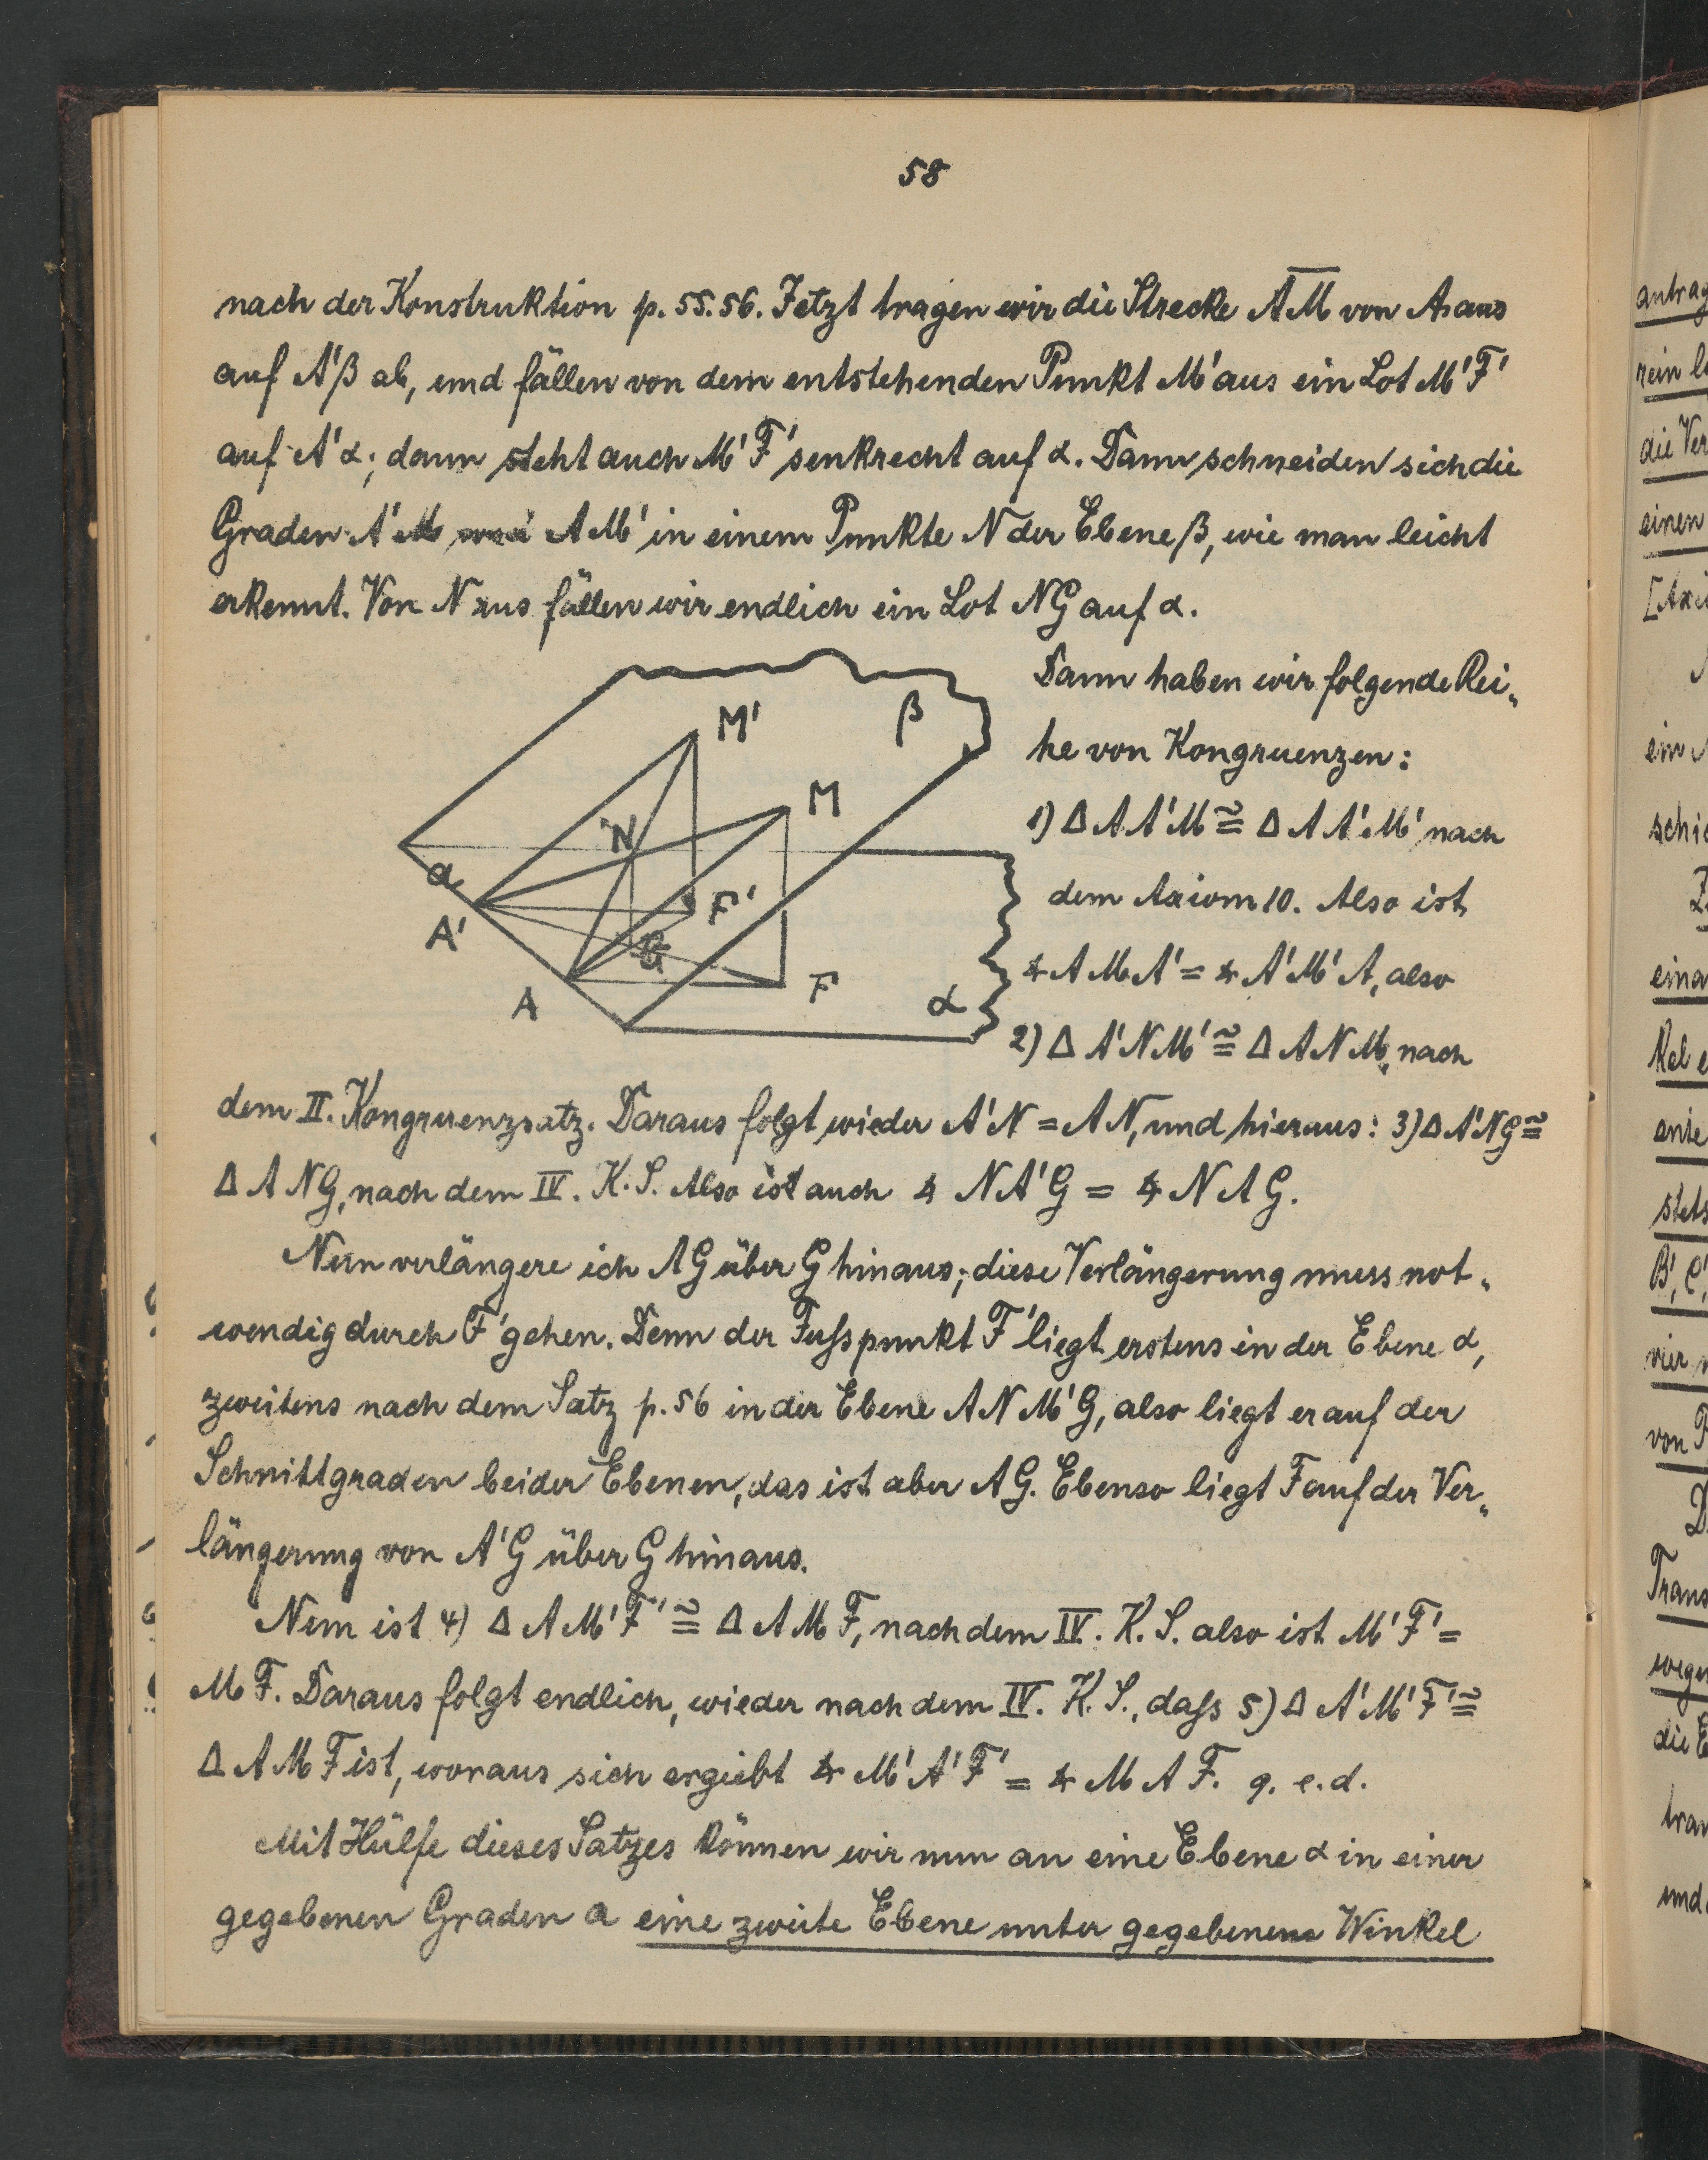 58
nach der Konstruktion p. 55. 56. Jetzt tragen wir die Strecke A̅M̅ von A' aus
auf A'β ab, und fällen von dem entstehenden Punkt M' aus ein Lot M'F'
auf A'α; dann steht auch M'F' senkrecht auf α. Dann schneiden sich die
Graden A'M und AM' in einem Punkte N der Ebene β, wie man leicht
erkennt. Von N aus fällen wir endlich ein Lot NG auf α.
Dann haben wir folgende Rei„
he von Kongruenzen:
1) Δ AA'M ≅ Δ AA'M' nach
dem Axiom 10. Also ist
∢ AMA' = ∢ A'M'A, also
2) Δ A'NM' ≅ Δ ANM, nach
M'
β
M
N
a
F'
A'
G
A
F
α
dem II. Kongruenzsatz. Daraus folgt wieder A'N = AN, und hieraus: 3) Δ A'NG ≅
Δ ANG, nach dem IV. K. S. Also ist auch ∢ NA'G = ∢ NAG.
Nun verlängere ich AG über G hinaus; diese Verlängerung muss not„
wendig durch F' gehen. Denn der Fusspunkt F' liegt erstens in der Ebene α,
zweitens nach dem Satz p. 56 in der Ebene ANM'G, also liegt er auf der
Schnittgraden beider Ebenen, das ist aber AG. Ebenso liegt F auf der Ver„
längerung von A'G über G hinaus.
Nun ist 4) Δ AM'F' ≅ Δ A'MF, nach dem IV. K. S. also ist M'F' =
MF. Daraus folgt endlich, wieder nach dem IV. K. S., dass 5) Δ A'M'F' ≅
Δ AMF ist, woraus sich ergiebt ∢ M'A'F' = ∢ MAF. q. e. d.
Mit Hülfe dieses Satzes können wir nun an eine Ebene α in einer
gegebenen Graden a eine zweite Ebene unter gegebenem Winkel
antrag
rein
die Ver
einen
schie
eina
stets
B', C'
vier
von
Trans
wege
die E
tran
und